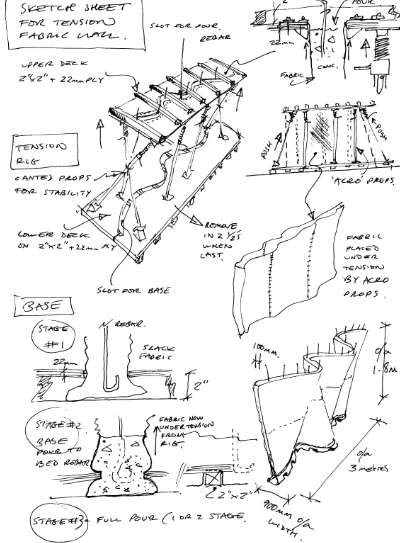 SKETCH SHEET
FOR TENSION
FABRIC WALL.
SLOT FOR POUR.
REBAR
UPPER DECK
2"x2" + 22mm PLY
POUR
22mm
FABRIC
CONC.
TENSION
RIG
CANTED PROPS
FOR STABILITY
LOWER DECK
ON 2"x2" + 22mm PLY
REMOVE
IN 2 1/2's
WHEN
LAST.
SLOT FOR BASE
PUSH
PUSH
'ACRO' PROPS.
FABRIC
PLACED
UNDER
TENSION
BY ACRO
PROPS.
BASE
STAGE
#1
REBAR.
SLACK
FABRIC
22mm
2"
STAGE #2
BASE
POUR TO
BED REBAR
FABRIC NOW
UNDER TENSION
FROM
RIG.
2"x2"
STAGE #3 - FULL POUR (1 OR 2 STAGE.
100mm.
o/a
1.8m
o/a
3 metres
900mm o/a
WIDTH.